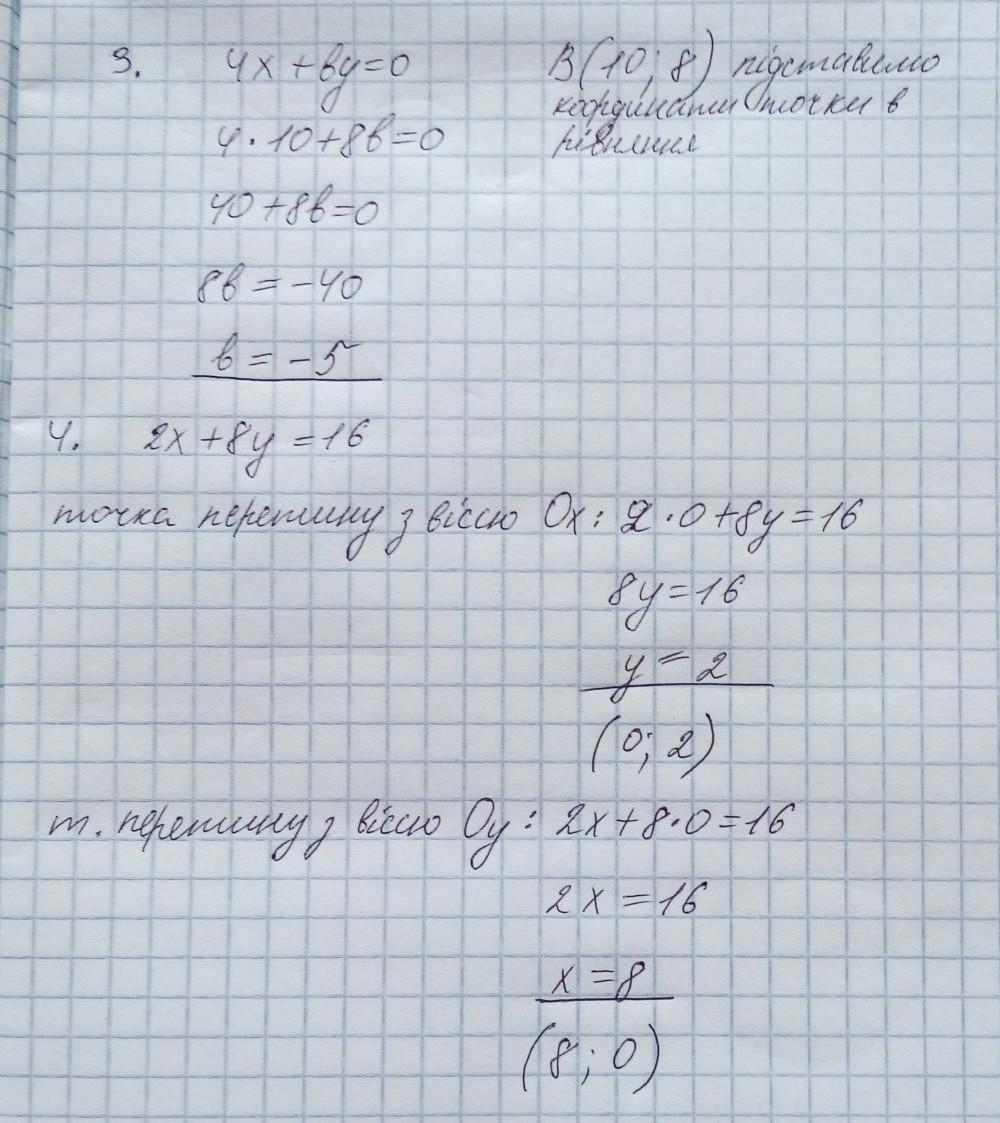 3. 4x + вy = 0 В(10; 8) підставимо
координати точки в
4 · 10 + 8в = 0 рівняння
40 + 8в = 0
8в = -40
в = -5
4. 2x + 8y = 16
точка перетину з віссю Ox: 2 · 0 + 8y = 16
8y = 16
y = 2
(0; 2)
т. перетину з віссю Oy: 2x + 8 · 0 = 16
2x = 16
x = 8
(8; 0)